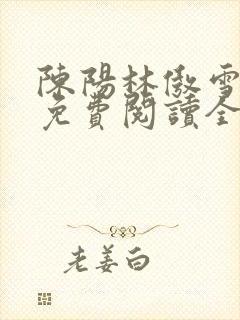 陳陽林傲雪
免費閱讀全
老姜白